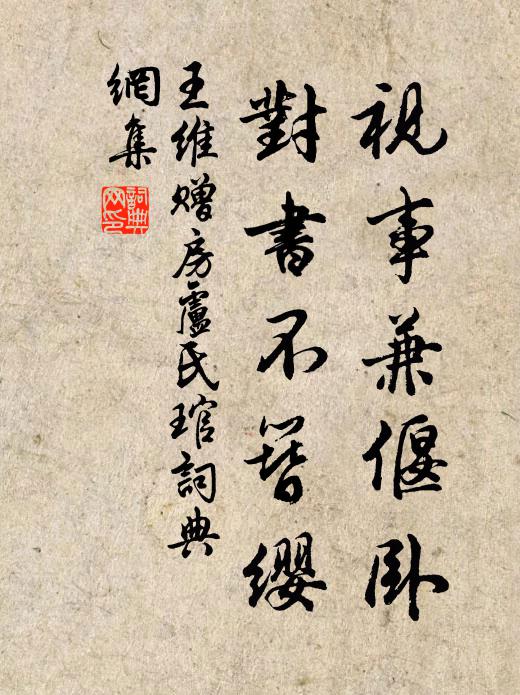 視事兼偃卧
對書不簪纓
王維贈房盧氏琯詞典
網集
詞典网印